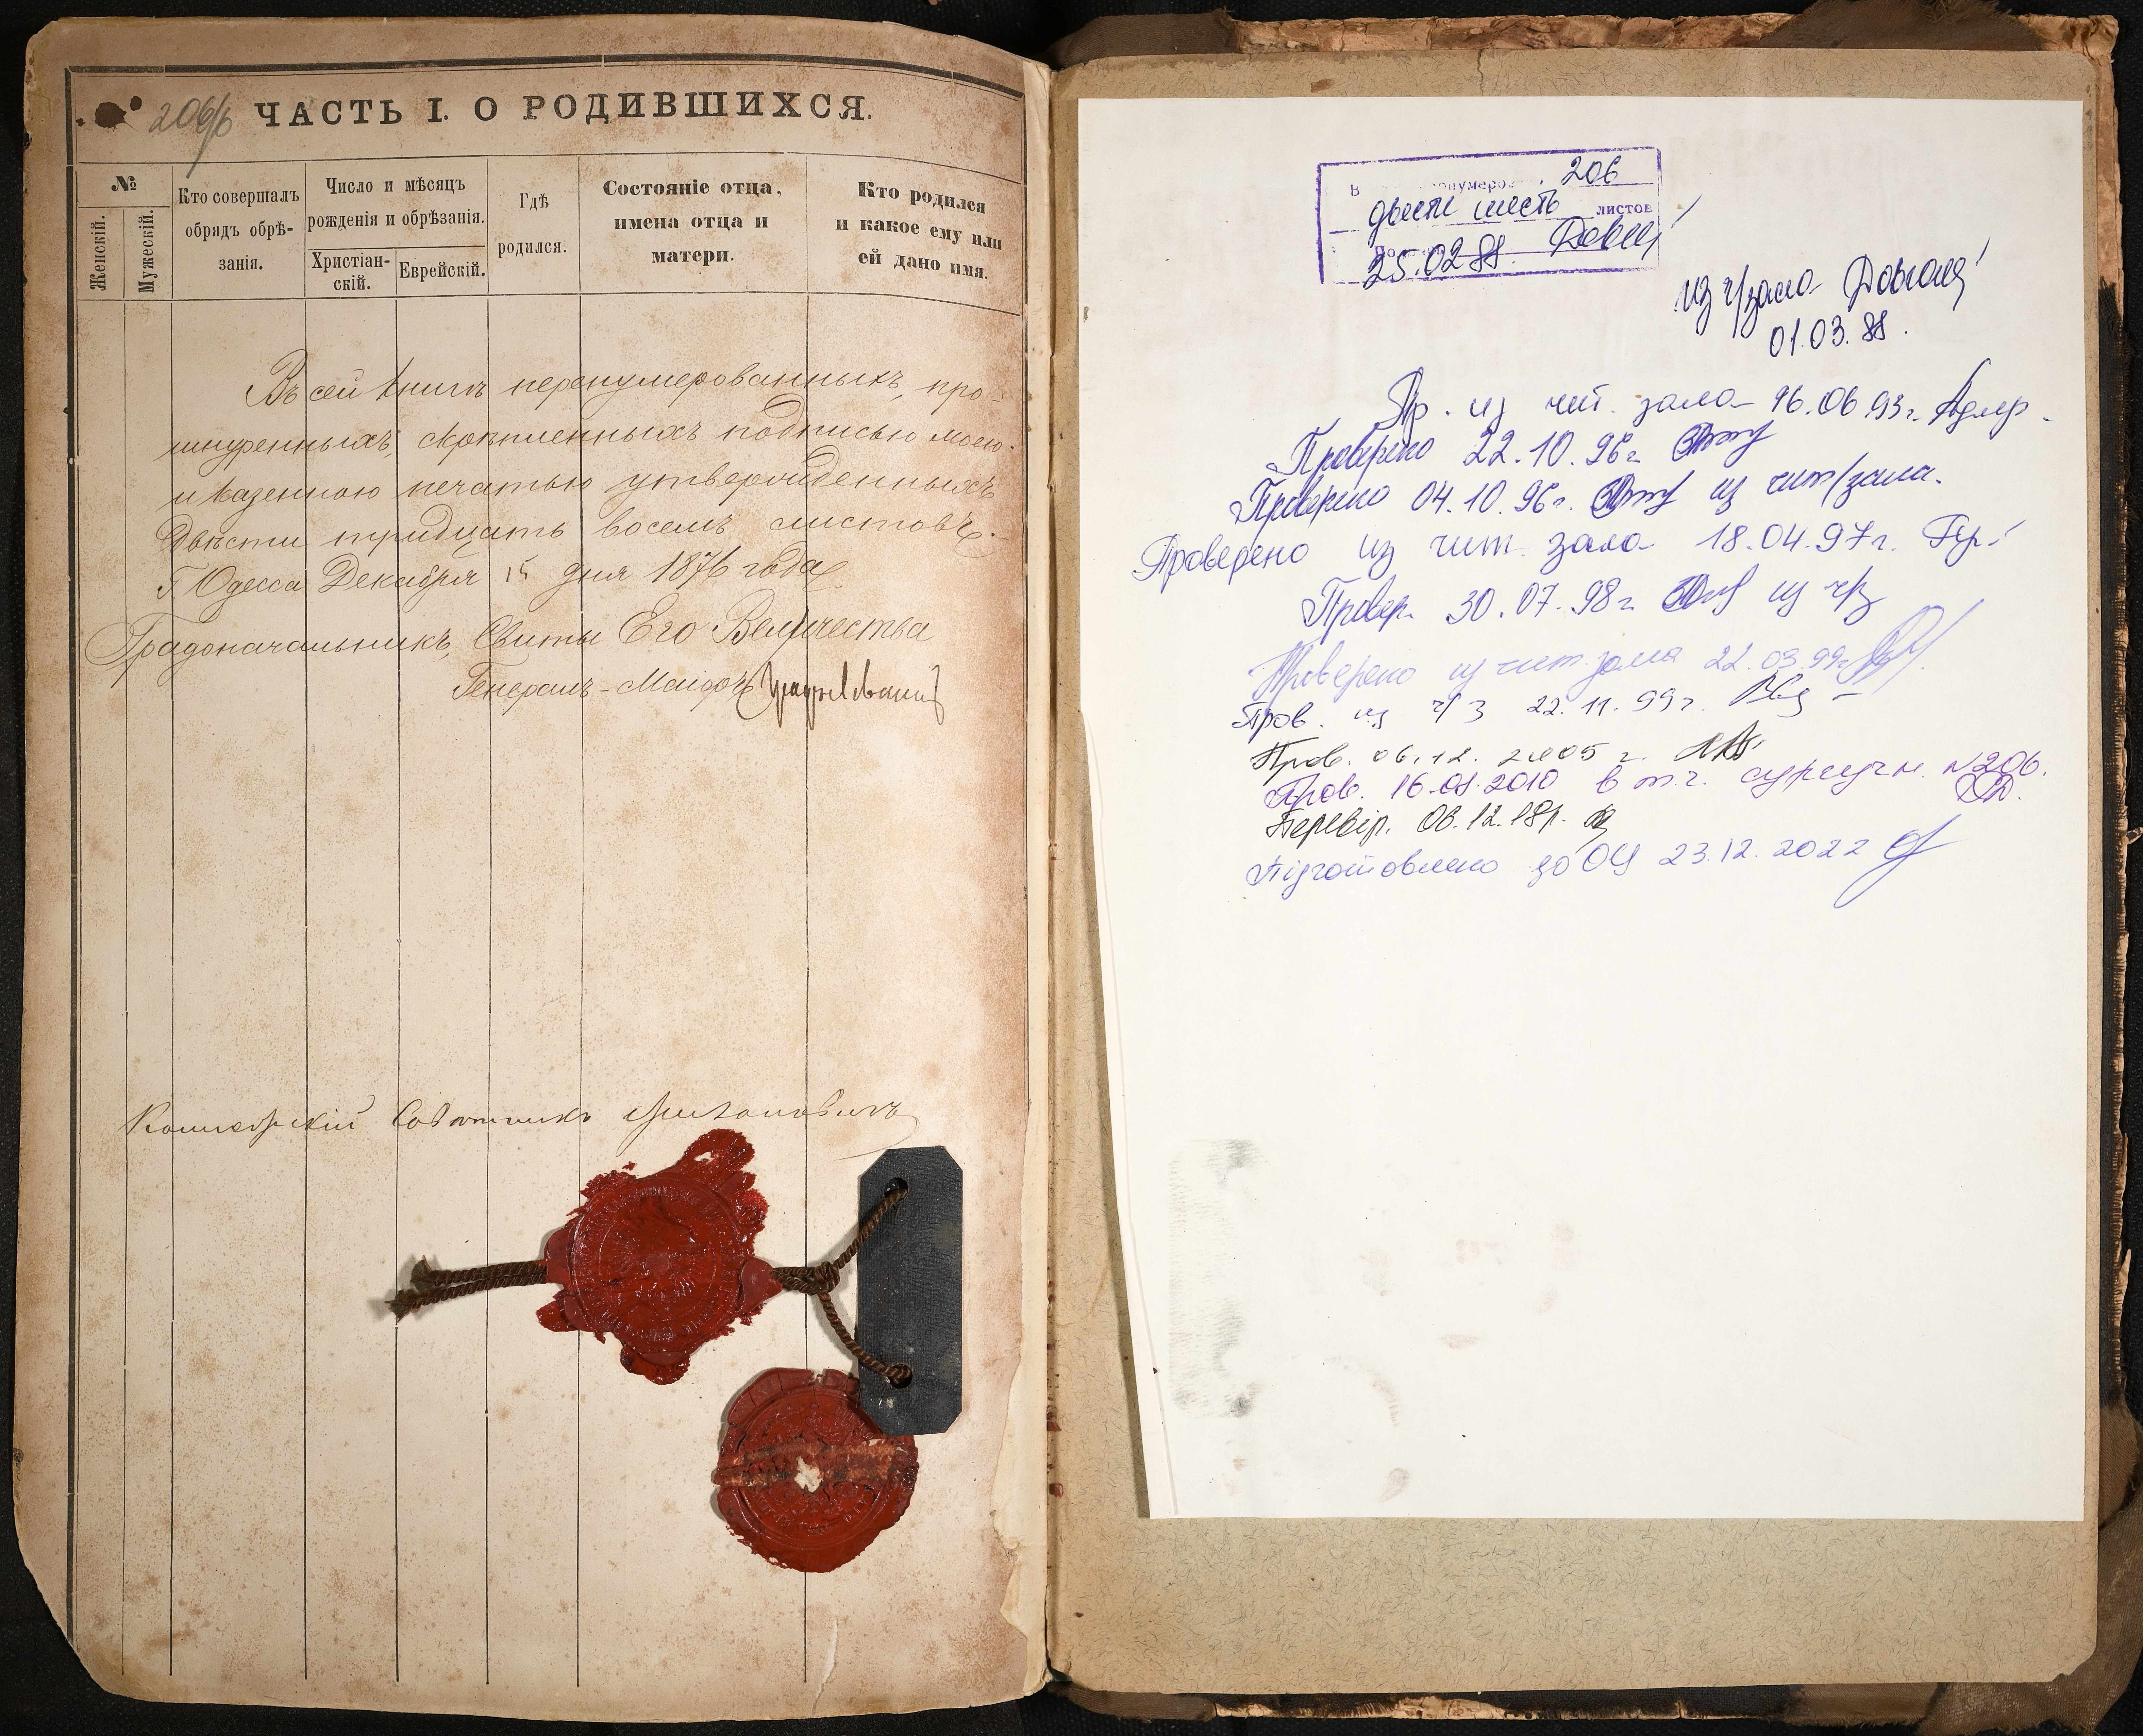 206/б ЧАСТЬ I. О РОДИВШИХСЯ.
№
Женскій.
Мужескій.
Кто совершалъ
обрядъ обрѣ-
занія.
Число и мѣсяцъ
рожденія и обрѣзанія.
Христіан-
скій.
Еврейскій.
Гдѣ
родился.
Состояніе отца,
имена отца и
матери.
Кто родился
и какое ему или
ей дано имя.
Въ сей книгѣ перенумерованныхъ, про-
шнуренныхъ, скрѣпленныхъ подписью моею
и казенною печатью утвержденныхъ
двѣсти тридцать восемь листовъ.
Г. Одесса Декабря 15 дня 1876 года
Градоначальникъ, Свиты Его Величества
Генералъ-Маіоръ
Коллежскій Совѣтникъ
В 206
двести шесть листов
25.02.88.
из ч/зала
01.03.88.
Пр. из чит. зала 16.06.93г.
Проверено 22.10.96г.
Проверено 04.10.96г. из чит/зала.
Проверено из чит. зала 18.04.97г.
Провер. 30.07.98г. из ч/з
Проверено из чит зала 22.03.99г.
Пров. из ч/з 22.11.99г.
Пров. 06.12.2005 г.
Пров. 16.01.2010 в т.ч. сургучн. N206.
Перевір. 06.12.18р.
Підготовлено до ОЦ 23.12.2022